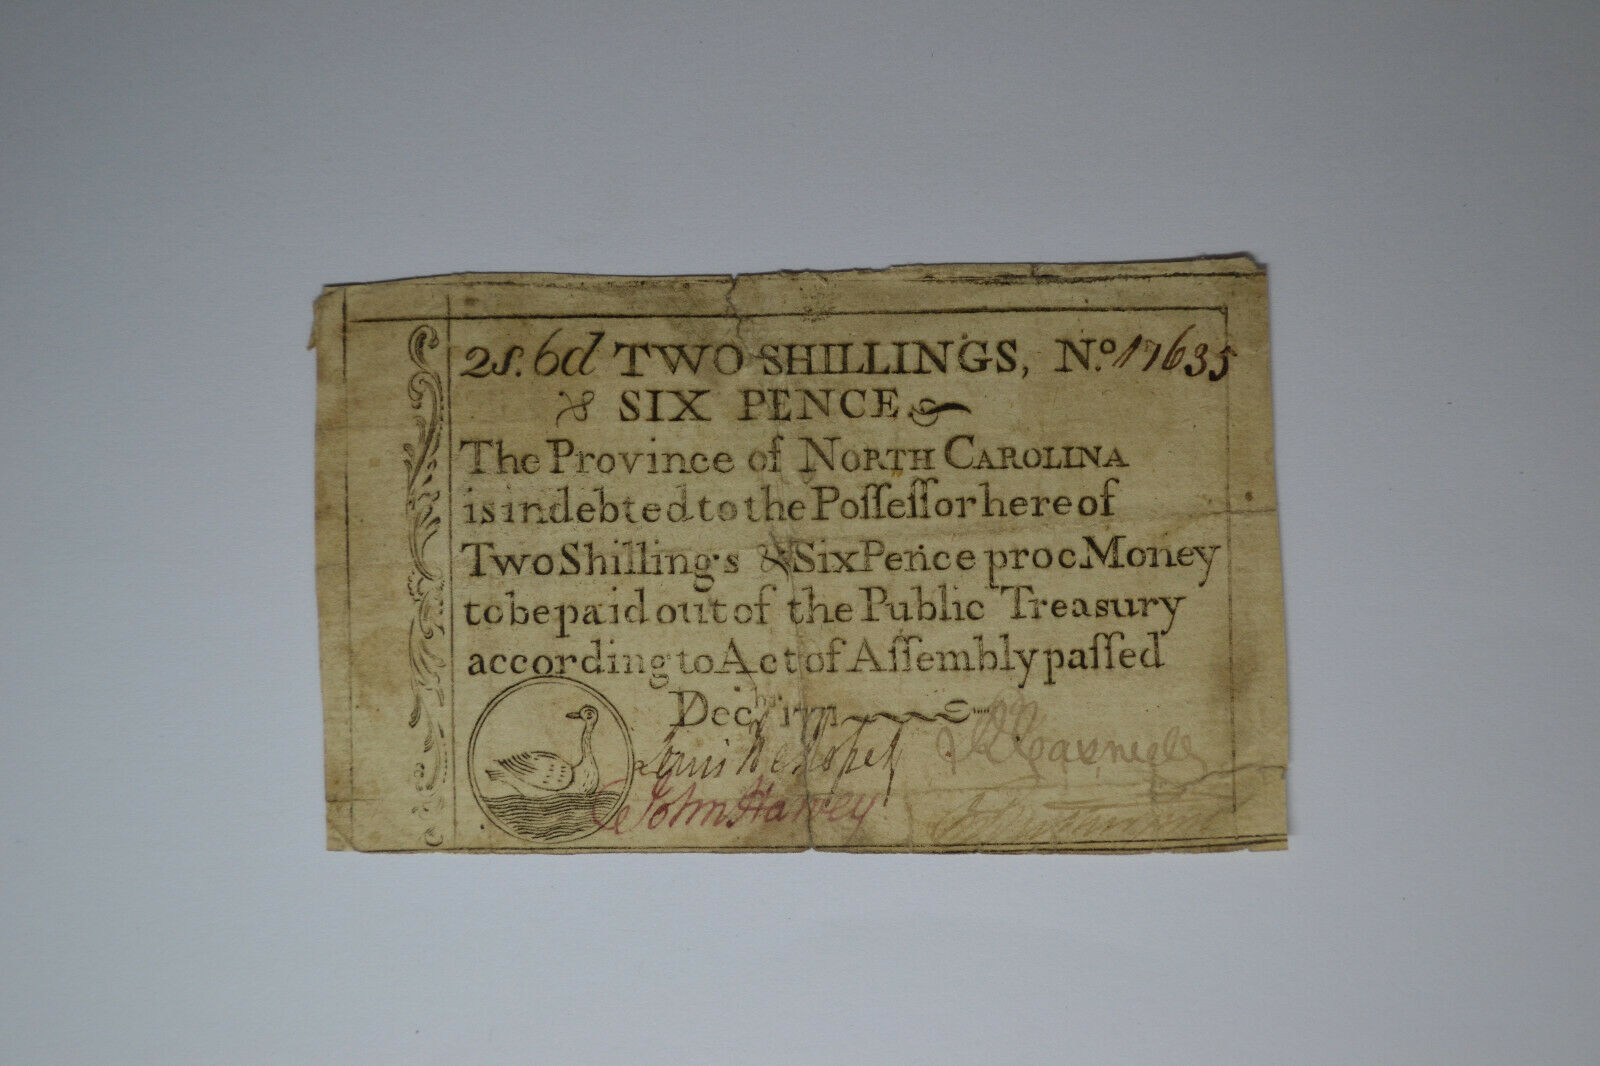 2ſ. 6d TWO SHILLINGS, No. 17635
& SIX PENCE
The Province of NORTH CAROLINA
is indebted to the Poſſeſſor hereof
Two Shillings & Six Pence proc Money
to be paid out of the Public Treasury
according to Act of Aſſembly paſſed
Decr. 1771
Lewis
John Harvey